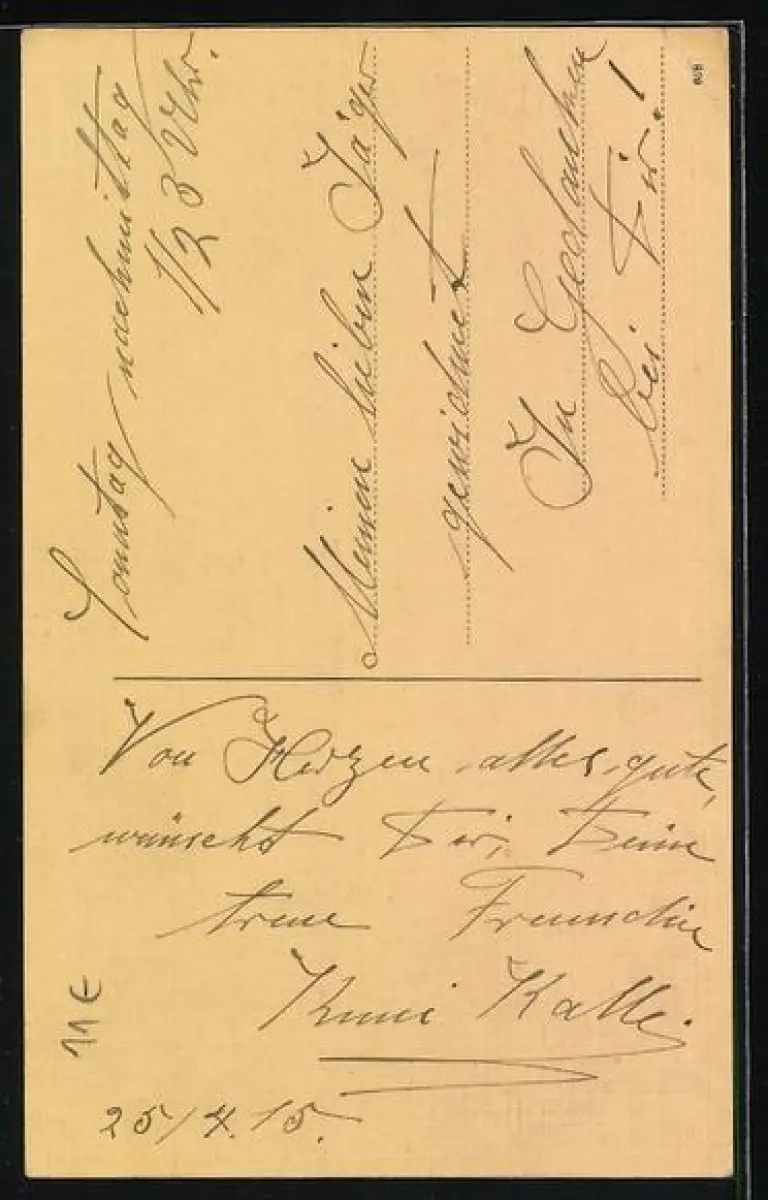 Sonntag nachmittag
1/2 3 Uhr.
Meinem lieben Jäger
gewidmet
In Gedanken
bei Dir!
Von Herzen alles gute,
wünscht Dir, Deine
treue Freundin
Kuni Kalb.
25/4.15.
11€